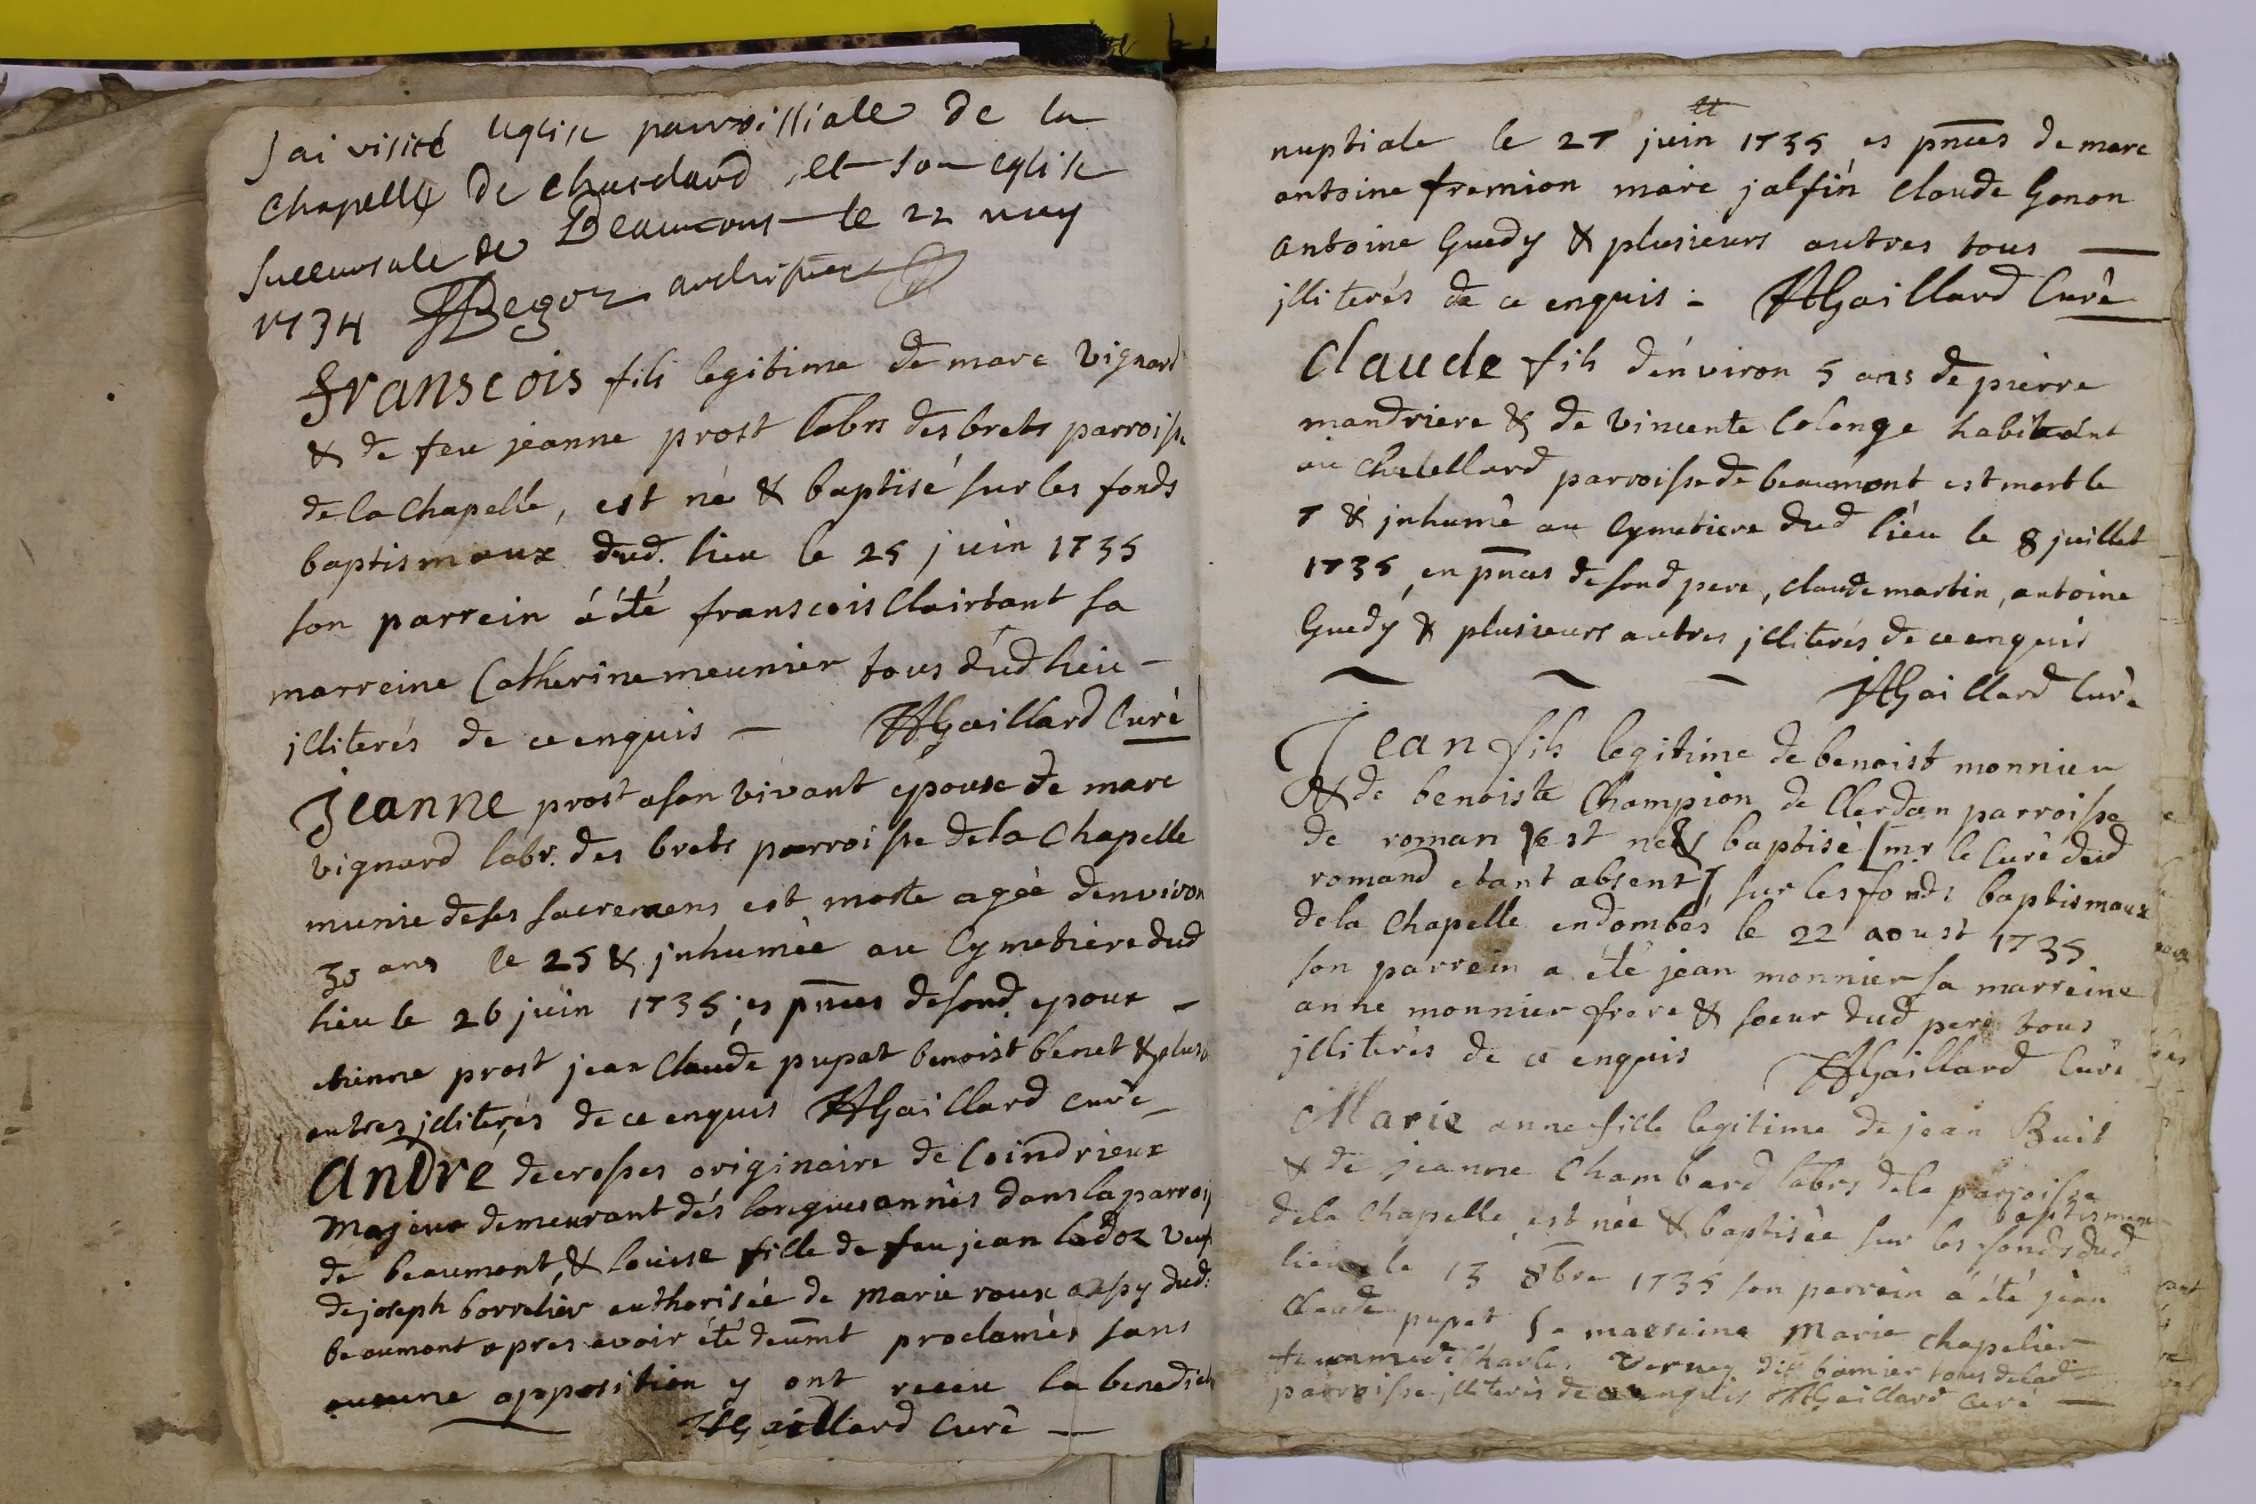 J'ai visité l'eglise parroissiale de la
Chapelle de chatelard, et son eglise
succursale de Beaumont le 22 may
1734 archiprêtre
franscois fils legitime de marc vignard
& de feu jeanne prost labrs des brets parroisse
de la chapelle, est né & baptisé sur les fonds
baptismaux dud. lieu le 25 juin 1735
son parrein á été franscois Clairtant sa
marreine Catherine meunier tous dud lieu —
jlliterés de ce enquis — Gaillard Curé
Jeanne prost a son vivant epouse de marc
vignard labr. des brets parroisse de la Chapelle
munie de ses sacremens est morte agée denviron
30 ans le 25 & jnhumée au Cymetiere dud
lieu le 26 juin 1735, es pnces de sond. epoux —
etienne prost jean Claude pupat benoist blenet & plusrs
autres jlliterés de ce enquis Gaillard curé
André decrosses originaire de Coindrieux
Majeur demeurant dés longues années dans la parroisse
de beaumont, & louise fille de feu jean ladoz veufe
de joseph borrelier authorisée de Marie roux dud:
beaumont apres avoir été deumt proclamés sans
aucune opposition y ont receu la benedict
Gaillard Curé —
nuptiale le 27 juin 1735 es pnces de marc
antoine fremion maire jalfin claude Gonon
antoine Guedy & plusieurs autres tous —
jlliterés de ce enquis - Gaillard Curé
Claude fils d'énviron 5 ans de pierre
mandriere & de vincente Colonge habitant
au Chatellard parroisse de beaumont est mort le
7 & jnhumé au Cymetiere dud lieu le 8 juillet
1735, en pnces de sond pere, claude martin, antoine
Guedy & plusieurs autres jlliterés de ce enquis
Gaillard Curé
Jean fils legitime de benoist monnier
& de benoiste Champion de Clerdan parroisse
de roman est né & baptisé [mr. le Curé dud
romand etant absent] sur les fonds baptismaux
de la Chapelle en dombes le 22 aoust 1735
son parrein a été jean monnier sa marreine
anne monnier frere & soeur dud pere tous
jlliterés de ce enquis Gaillard Curé
Marie anne fille legitime de jean Buit
& de jeanne Chambard labrs de la parroisse
de la Chapelle, est née & baptisée sur les fonds baptismaux dud
lieu le 13 8bre 1735 son parrein á été jean
Claude pupat sa marreine Marie chapelier
femme de Charles Verney dit bornier tous de lad.
parroisse jlliterés de ce enquis Gaillard Curé —